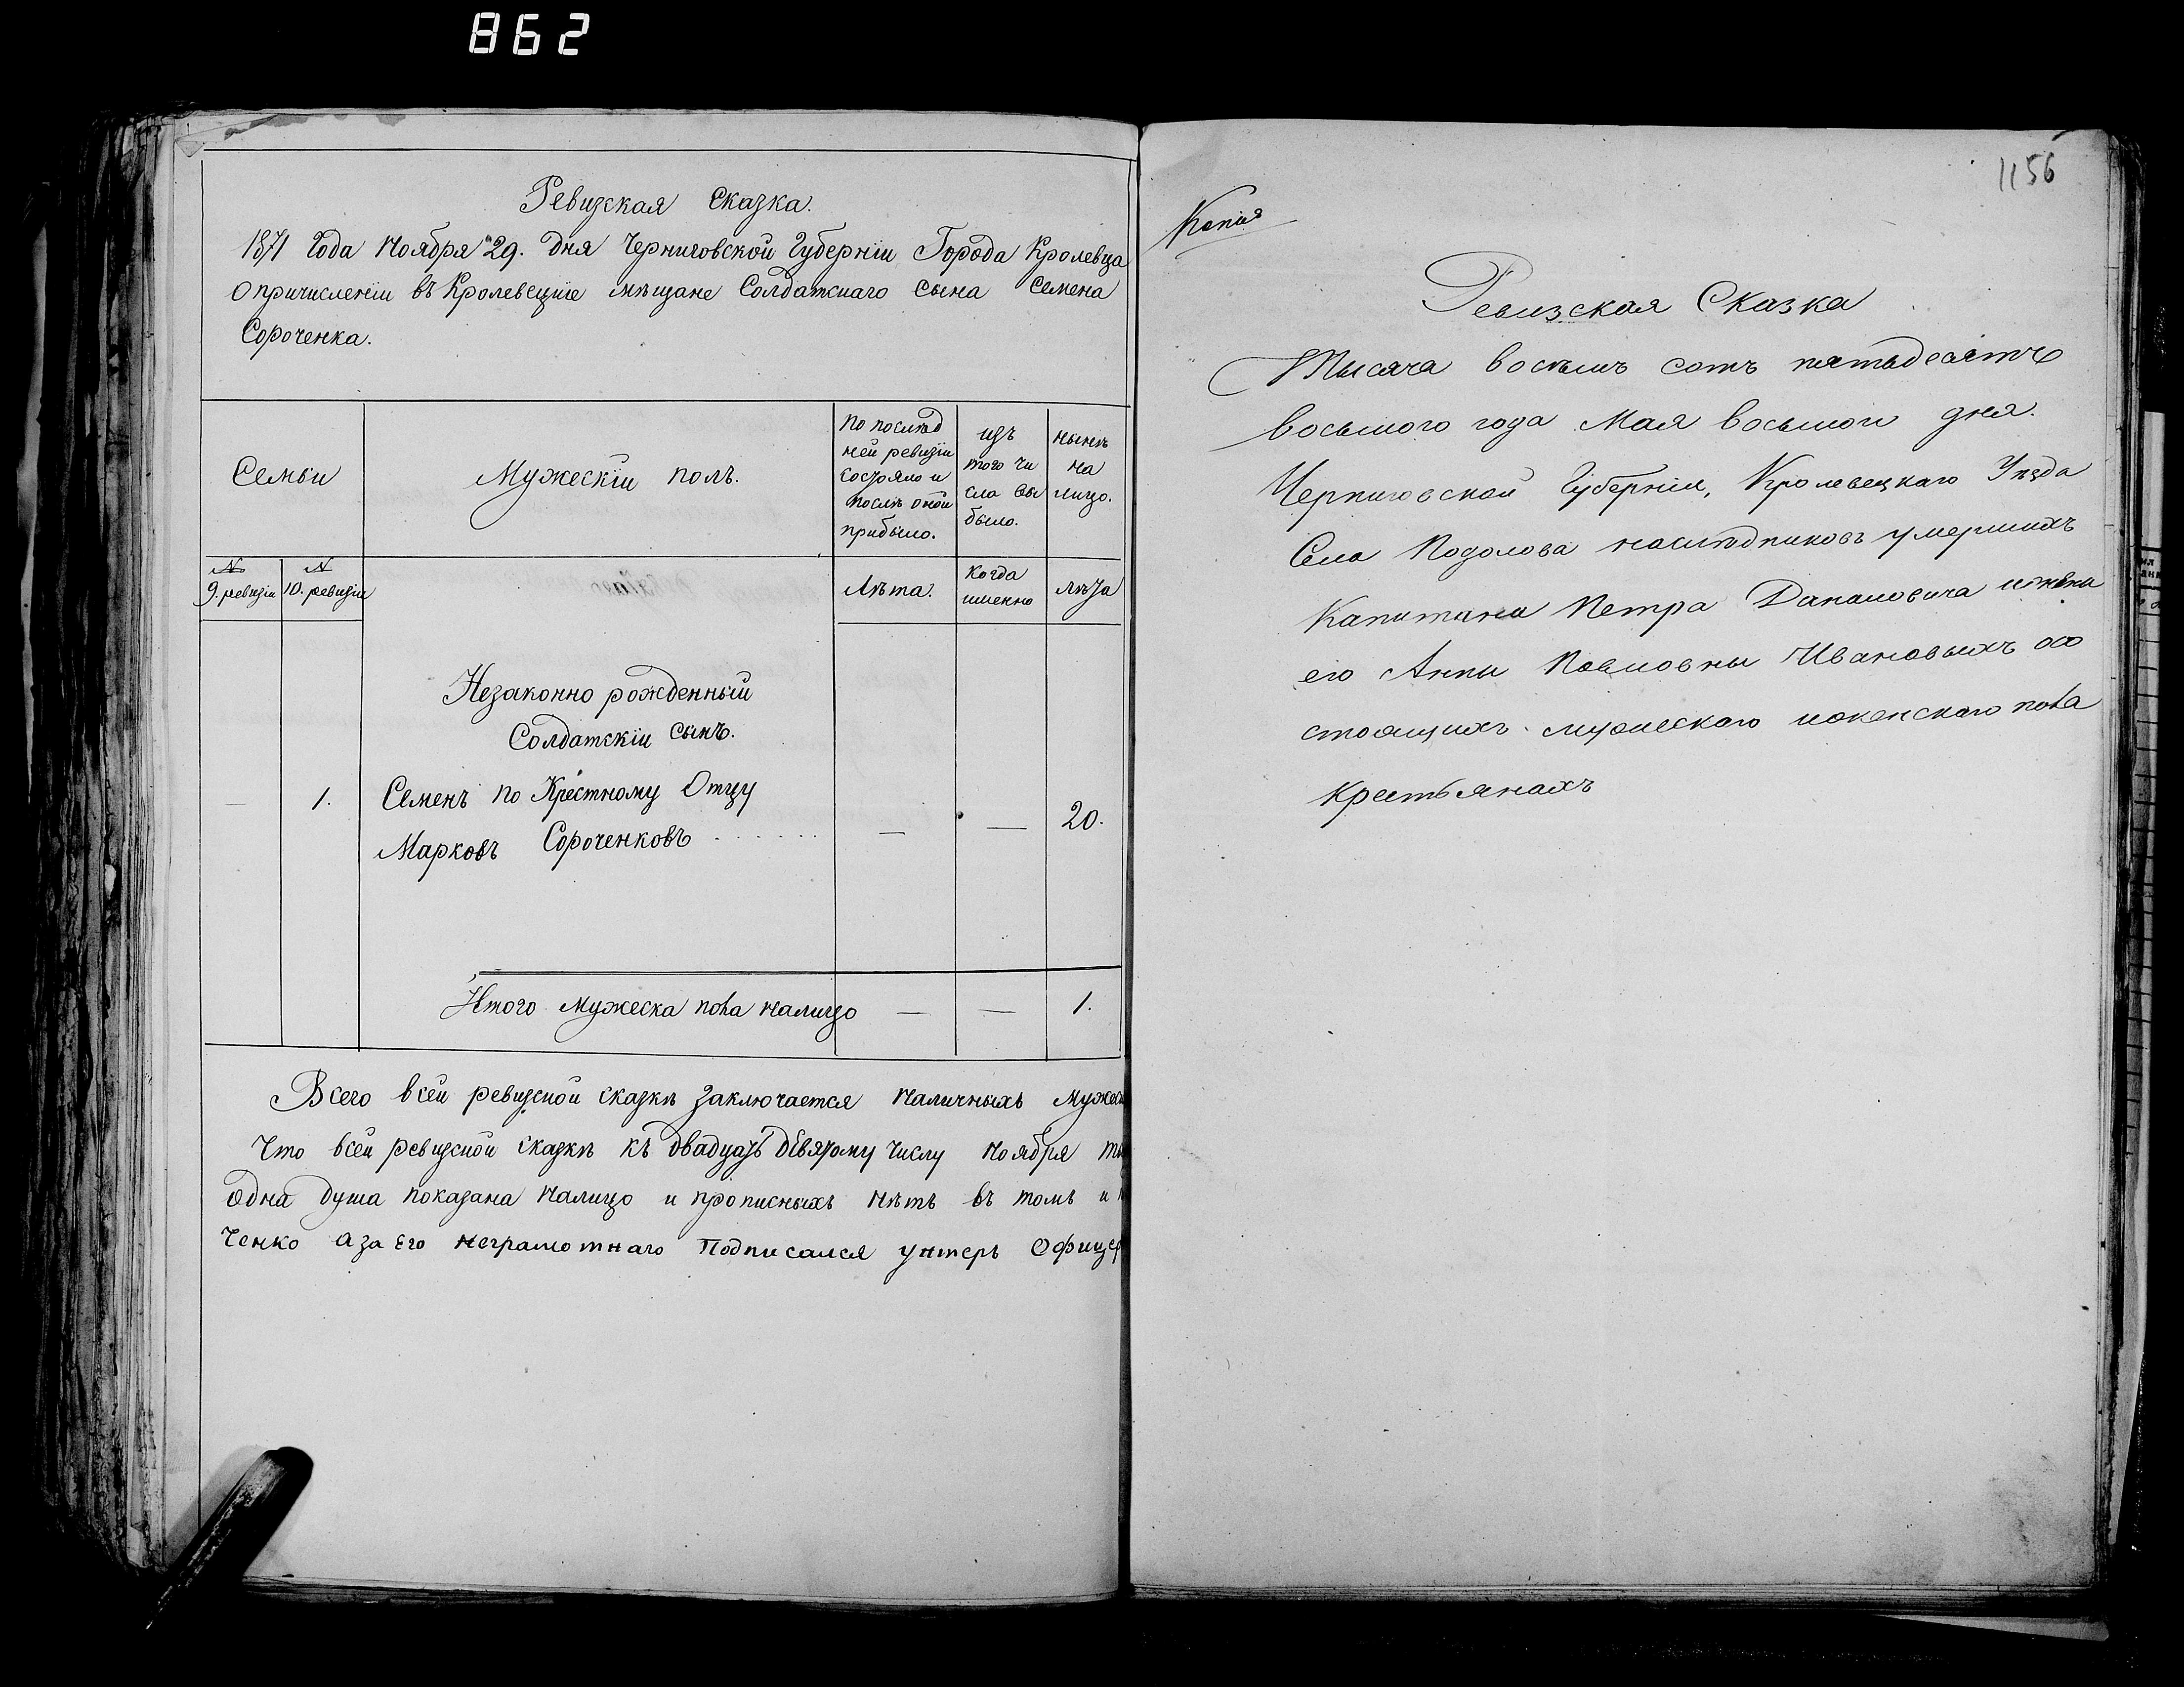 862
Ревизская Сказка.
1871 Года Ноября 29. дня Черниговской Губерніи Города Кролевца
О причисленіи въ Кролевецкіе мѣщане Солдатскаго сына Семена
Сороченка.
Семьи
Мужескій полъ.
По послѣд
ней ревизіи
состояло и
послѣ оной
прибыло.
изъ
того чи
сла вы
было.
нынѣ
на
лицо.
№
9. ревизіи
№
10. ревизіи
Лѣта.
Когда
именно
лѣта
Незаконно рожденный
Солдатскій сынъ.
— 1. Семенъ по Крестному Отцу
Марковъ Сороченковъ . . . . . . — — 20.
Итого Мужеска пола налицо — — 1.
Всего всей ревизской сказкѣ заключается наличныхъ Мужес
Что всей ревизской сказкѣ къ двадцать девятому числу Ноября ты
Одна душа показана налицо и прописныхъ нѣтъ въ томъ и
ченко а за Его неграмотнаго подписался унтеръ Офицер
1156
Копія
Ревизская Сказка
Тысяча восемь сотъ пятьдесятъ
восьмого года Мая восьмого дня.
Черниговской Губерніи, Кролевецкаго Уѣзда
Села Подолова наслѣдниковъ умершихъ
Капитана Петра Даниловича и жены
его Анны Павловны Ивановыхъ о со
стоящихъ мужескаго и женскаго пола
крестьянахъ